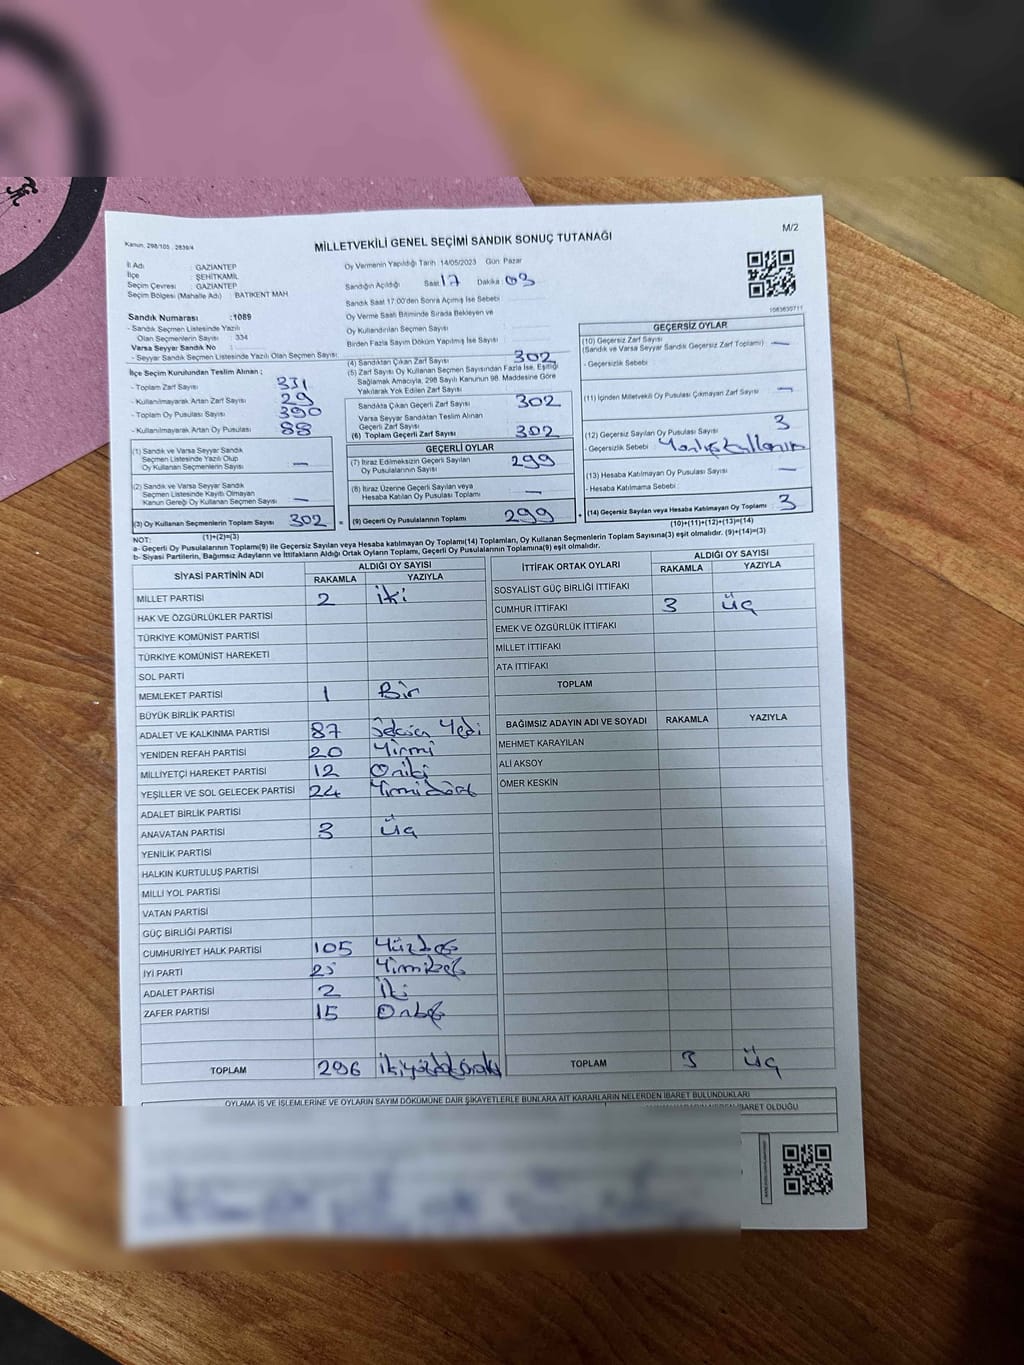 Kanun. 298/105 , 2839/4
M/2
MİLLETVEKİLİ GENEL SEÇİMİ SANDIK SONUÇ TUTANAĞI
İl Adı : GAZİANTEP
İlçe : ŞEHİTKAMİL
Seçim Çevresi : GAZİANTEP
Seçim Bölgesi (Mahalle Adı) : BATIKENT MAH
Oy Vermenin Yapıldığı Tarih :14/05/2023 Gün: Pazar
Sandığın Açıldığı Saat 17 Dakika 03
Sandık Saat 17:00'den Sonra Açımış İse Sebebi
Oy Verme Saati Bitiminde Sırada Bekleyen ve
Oy Kullandırılan Seçmen Sayısı
Birden Fazla Sayım Döküm Yapılmış İse Sayısı :
1083630711
Sandık Numarası :1089
- Sandık Seçmen Listesinde Yazılı
Olan Seçmenlerin Sayısı : 334
Varsa Seyyar Sandık No :
- Seyyar Sandık Seçmen Listesinde Yazılı Olan Seçmen Sayısı:
İlçe Seçim Kurulundan Teslim Alınan ;
- Toplam Zarf Sayısı 331
- Kullanılmayarak Artan Zarf Sayısı 29
- Toplam Oy Pusulası Sayısı 390
- Kullanılmayarak Artan Oy Pusulası 88
(1) Sandık ve Varsa Seyyar Sandık
Seçmen Listesinde Yazılı Olup
Oy Kullanan Seçmenlerin Sayısı —
(2) Sandık ve Varsa Seyyar Sandık
Seçmen Listesinde Kayıtlı Olmayan
Kanun Gereği Oy Kullanan Seçmen Sayısı —
(3) Oy Kullanan Seçmenlerin Toplam Sayısı 302 =
(1)+(2)=(3)
(4) Sandıktan Çıkan Zarf Sayısı 302
(5) Zarf Sayısı Oy Kullanan Seçmen Sayısından Fazla İse, Eşitliği
Sağlamak Amacıyla, 298 Sayılı Kanunun 98. Maddesine Göre
Yakılarak Yok Edilen Zarf Sayısı
Sandıkta Çıkan Geçerli Zarf Sayısı 302
Varsa Seyyar Sandıktan Teslim Alınan
Geçerli Zarf Sayısı
(6) Toplam Geçerli Zarf Sayısı 302
GEÇERLİ OYLAR
(7) İtiraz Edilmeksizin Geçerli Sayılan
Oy Pusulalarının Sayısı 299
(8) İtiraz Üzerine Geçerli Sayılan veya
Hesaba Katılan Oy Pusulası Toplamı —
(9) Geçerli Oy Pusulalarının Toplamı 299 +
GEÇERSİZ OYLAR
(10) Geçersiz Zarf Sayısı
(Sandık ve Varsa Seyyar Sandık Geçersiz Zarf Toplamı) —
- Geçersizlik Sebebi
(11) İçinden Milletvekili Oy Pusulası Çıkmayan Zarf Sayısı —
(12) Geçersiz Sayılan Oy Pusulası Sayısı 3
- Geçersizlik Sebebi Yanlış Kullanım
(13) Hesaba Katılmayan Oy Pusulası Sayısı —
- Hesaba Katılmama Sebebi :
(14) Geçersiz Sayılan veya Hesaba Katılmayan Oy Toplamı 3
(10)+(11)+(12)+(13)=(14)
NOT:
a- Geçerli Oy Pusulalarının Toplamı(9) ile Geçersiz Sayılan veya Hesaba katılmayan Oy Toplamı(14) Toplamları, Oy Kullanan Seçmenlerin Toplam Sayısına(3) eşit olmalıdır. (9)+(14)=(3)
b- Siyasi Partilerin, Bağımsız Adayların ve İttifakların Aldığı Ortak Oyların Toplamı, Geçerli Oy Pusulalarının Toplamına(9) eşit olmalıdır.
SİYASİ PARTİNİN ADI ALDIĞI OY SAYISI
RAKAMLA YAZIYLA
MİLLET PARTİSİ 2 iki
HAK VE ÖZGÜRLÜKLER PARTİSİ
TÜRKİYE KOMÜNİST PARTİSİ
TÜRKİYE KOMÜNİST HAREKETİ
SOL PARTİ
MEMLEKET PARTİSİ 1 Bir
BÜYÜK BİRLİK PARTİSİ
ADALET VE KALKINMA PARTİSİ 87 Seksen Yedi
YENİDEN REFAH PARTİSİ 20 Yirmi
MİLLİYETÇİ HAREKET PARTİSİ 12 Oniki
YEŞİLLER VE SOL GELECEK PARTİSİ 24 Yirmidört
ADALET BİRLİK PARTİSİ
ANAVATAN PARTİSİ 3 üç
YENİLİK PARTİSİ
HALKIN KURTULUŞ PARTİSİ
MİLLİ YOL PARTİSİ
VATAN PARTİSİ
GÜÇ BİRLİĞİ PARTİSİ
CUMHURİYET HALK PARTİSİ 105 Yüzbeş
İYİ PARTİ 25 Yirmibeş
ADALET PARTİSİ 2 İki
ZAFER PARTİSİ 15 Onbeş
TOPLAM 296 ikiyüzdoksanaltı
İTTİFAK ORTAK OYLARI ALDIĞI OY SAYISI
RAKAMLA YAZIYLA
SOSYALİST GÜÇ BİRLİĞİ İTTİFAKI
CUMHUR İTTİFAKI 3 üç
EMEK VE ÖZGÜRLÜK İTTİFAKI
MİLLET İTTİFAKI
ATA İTTİFAKI
TOPLAM
BAĞIMSIZ ADAYIN ADI VE SOYADI RAKAMLA YAZIYLA
MEHMET KARAYILAN
ALİ AKSOY
ÖMER KESKİN
TOPLAM 3 üç
OYLAMA İŞ VE İŞLEMLERİNE VE OYLARIN SAYIM DÖKÜMÜNE DAİR ŞİKAYETLERLE BUNLARA AİT KARARLARIN NELERDEN İBARET BULUNDUKLARI
İBARET OLDUĞU